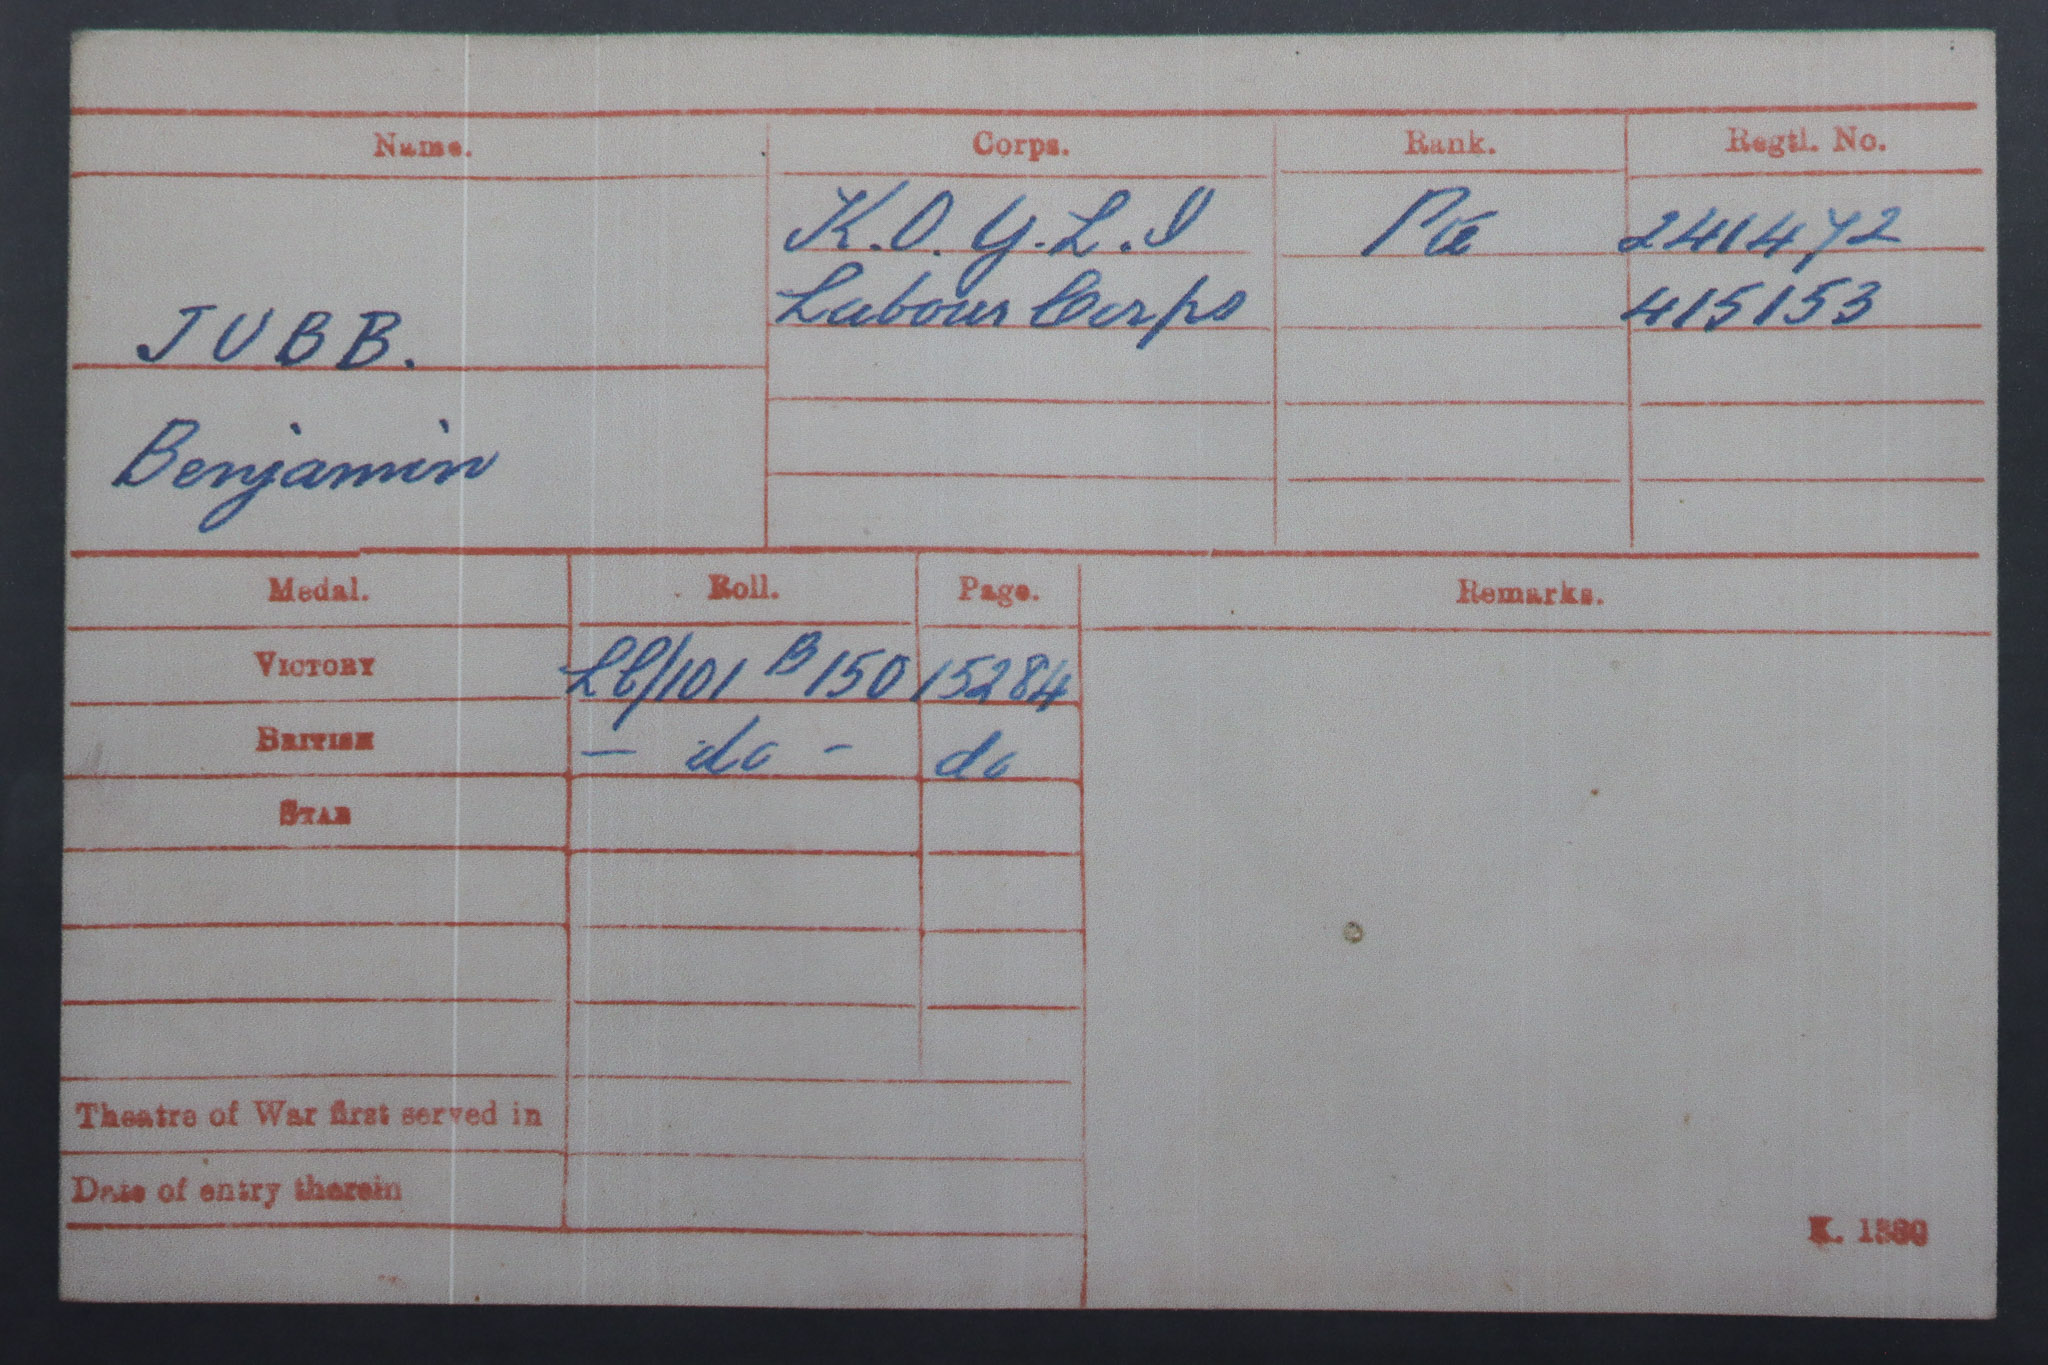 Name. Corps. Rank. Regtl. No.
K.O.Y.L.I Pte 241472
JUBB. Labour Corps 415153
Benjamin
Medal. Roll. Page. Remarks.
VICTORY LC/101 B 150 15284
BRITISH - do - do
STAR
Theatre of War first served in
Date of entry therein
K. 1380